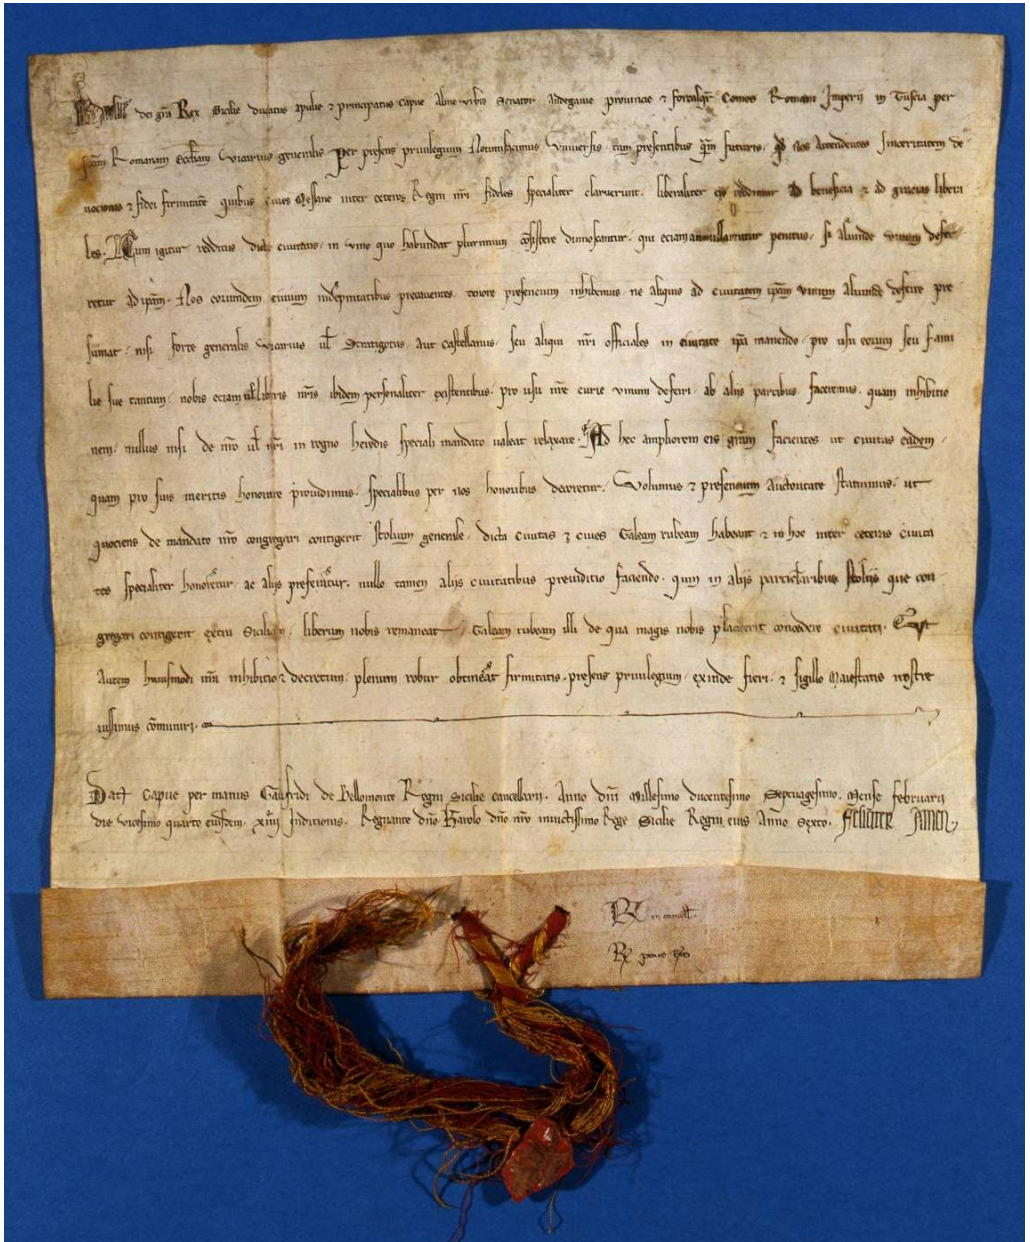 dei gra Rex Sicilie ducatus Apulie ⁊ principatus Capue Alme urbis Senator Andegavie provincie ⁊ forcalqr Comes Romani Imperii in Tuscia per
scam Romanam eccliam vicarius generalis Per presens privilegium Notum facimus Universis tam presentibus qm futuris qd nos Attendentes sinceritatem de
vocionis ⁊ fidei firmitate quibus cives Messane inter ceteros Regni nri fideles specialiter claruerunt liberaliter eis reddimur ad beneficia ⁊ ad gracias libera
les Cum igitur redditus dicte civitatis in vino quo habundat plurimum cosistere dinoscantur qui eciam annullarentur penitus si aliunde vinum defer
retur ad ipam Nos eorundem civium indepnitatibus precaventes tenore presencium inhibemus ne aliquis ad civitatem ipam vinum aliunde deferre pre
sumat nisi forte generalis vicarius ul Stratigotus aut castellanus seu aliqui nri officiales in civitate ipa manendo pro usu eorum seu fami
lie sue tantum nobis eciam ul liberis nris ibidem personaliter existentibus pro usu nre curie vinum deferri ab aliis partibus faceremus quam inhibicio
nem nullus nisi de nro ul nri in regno heredis speciali mandato valeat relaxare Ad hec ampliorem eis gram facientes ut civitas eadem
quam pro suis meritis honorare providimus specialibus per nos honoribus decoretur Volumus ⁊ presencium Auctoritate statuimus ut
quociens de mandato nro congregari contigerit stolium generale dicta civitas ⁊ cives Galeam rubeam habeant ⁊ in hoc inter ceteras civita
tes specialiter honoretur ac aliis preferatur nullo tamen aliis civitatibus preiudicio faciendo quin in aliis particularibus stoliis que con
gregari contigerit extra Siciliam liberum nobis remaneat Galeam rubeam illi de qua magis nobis placuerit concedere civitati Ut
Autem huiusmodi nra inhibicio ⁊ decretum plenum robur obtineat firmitatis presens privilegium exinde fieri ⁊ sigillo Maiestatis nostre
iussimus comuniri
Dat Capue per manus Gaufridi de Bellomonte Regni Sicilie cancellarii Anno dni Millesimo ducentesimo Septuagesimo Mense februarii
die vicesimo quarto eiusdem xiiii Indictionis Regnante dno Karolo dno nro invictissimo Rege Sicilie Regni eius Anno Sexto Feliciter Amen
in cancell